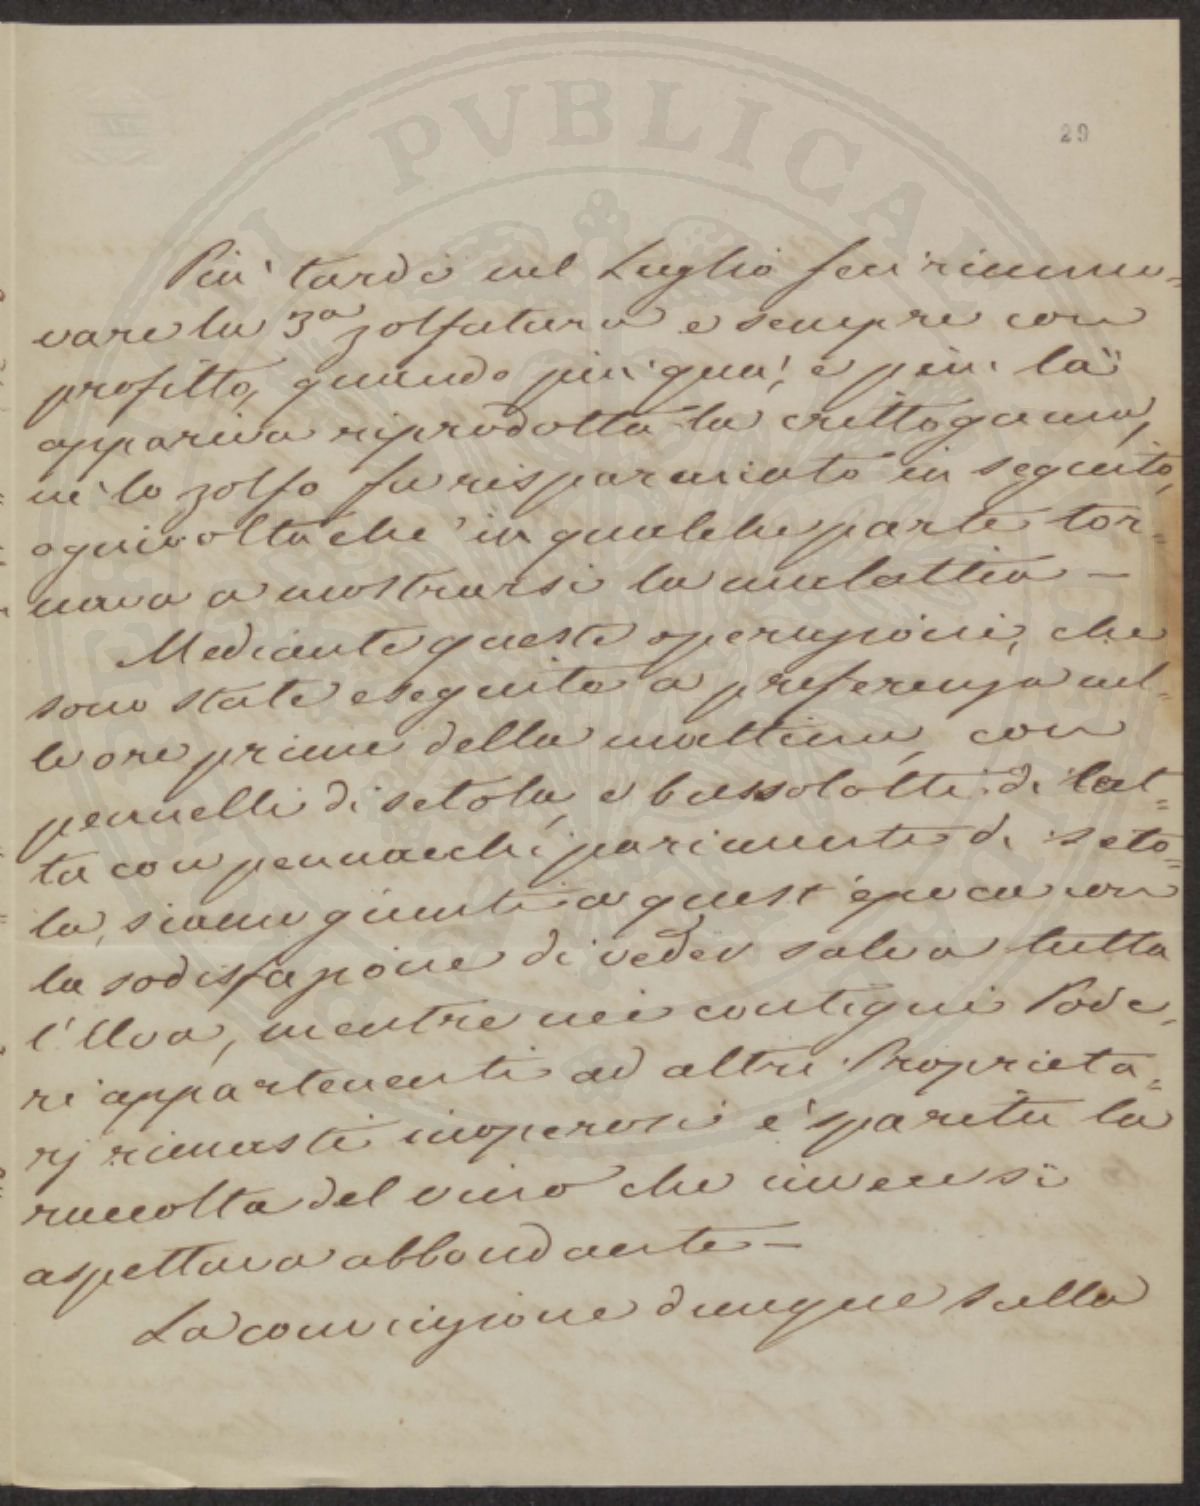 29
Piu' tardi nel Luglio feci rinnuo-
vare la 3a zolfatura e sempre con
profitto, quando piu' qua', e piu' la'
appariva riprodotta la crittogama,
ne' lo zolfo fu risparmiato in seguito,
ogni volta che in qualche parte tor-
nava a mostrarsi la malattia —
Mediante queste operazioni, che
sono state eseguite a preferenza nel-
le ore prime della mattina, con
pennelli di setola, e bussolotti di lat-
ta con pennacchi parimente di seto-
la, siamo giunti a quest'epoca con
la sodisfazione di veder salva tutta
l'Uva, mentre nei contigui Pode-
ri appartenenti ad altri Proprieta-
rj rimasti inoperosi e' sparita la
raccolta del vino che invece si
aspettava abbondante —
La convinzione dunque sulla
PVBLICAE